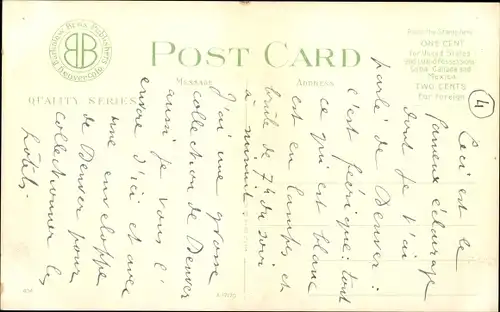 Bros. Publishers
Denver, Colo
BB
POST CARD
Place the Stamp here
ONE CENT
for United States
and Island Possessions
Cuba, Canada and
Mexico
TWO CENTS
For Foreign
MESSAGE
ADDRESS
QUALITY SERIES
4
Ceci est le
fameux éclairage
dont je t'ai
parlé de Denver :
c'est féerique : tout
ce qui est blanc
est en lampes et
brûle de 7h du soir
à minuit
J'ai une grosse
collection de Denver
aussi je vous l'
envoie d'ici et avec
une enveloppe
de Denver pour
collectionner les
hôtels.